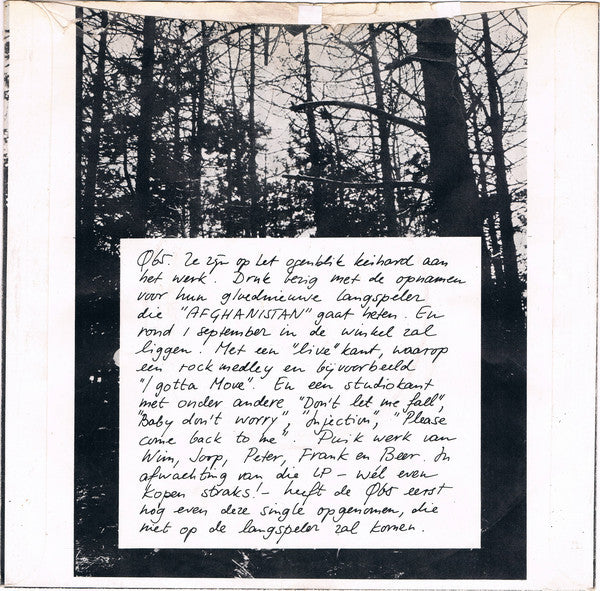 Q65. Ze zijn op het ogenblik keihard aan
het werk. Druk bezig met de opnamen
voor hun gloednieuwe langspeler
die "AFGHANISTAN" gaat heten. En
rond 1 september in de winkel zal
liggen. Met een "live" kant, waarop
een rockmedley en bijvoorbeeld
"I gotta Move". En een studiokant
met onder andere "Don't let me fall",
"Baby don't worry", "Injection", "Please
come back to me". Puik werk van
Wim, Joop, Peter, Frank en Beer. In
afwachting van die LP – wél even
kopen straks! – heeft de Q65 eerst
nog even deze single opgenomen, die
niet op de langspeler zal komen.